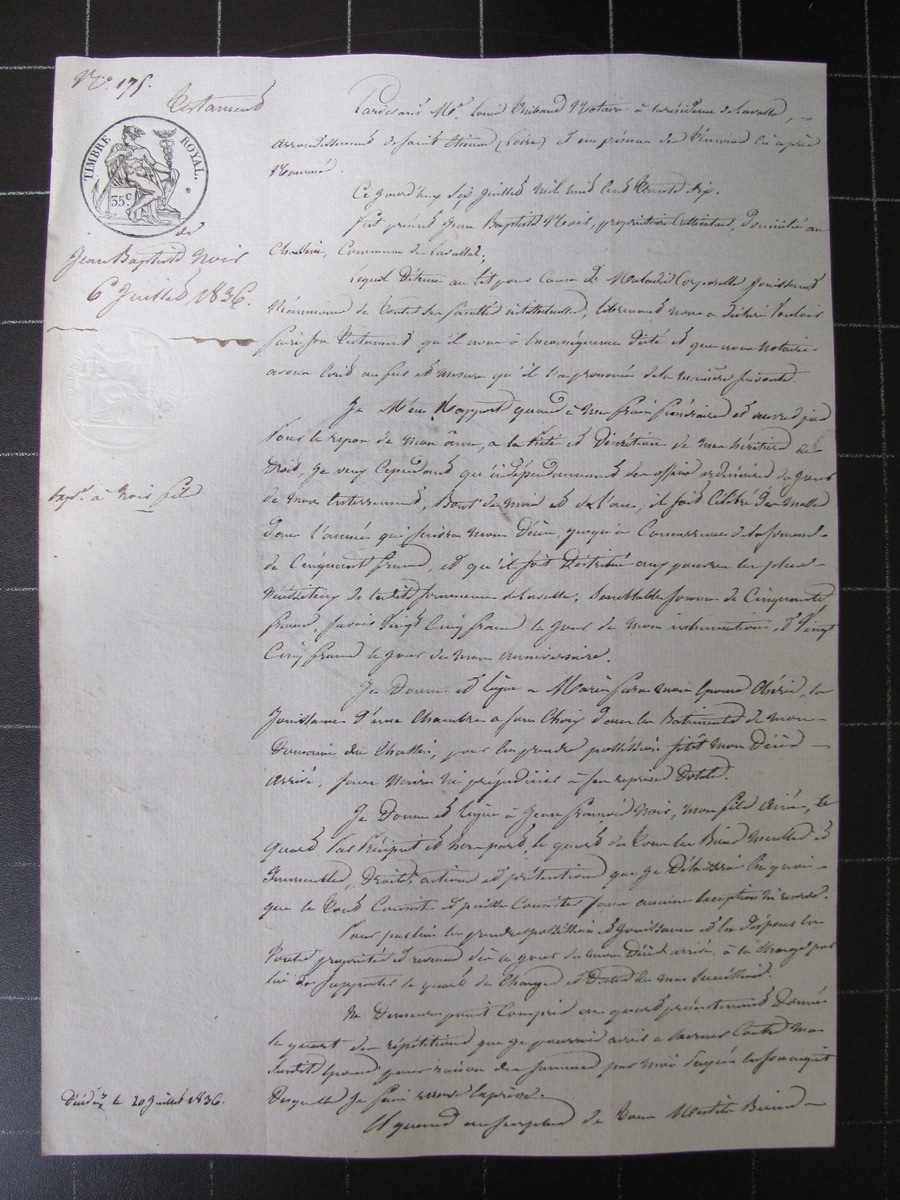 N.° 175.
Testament
TIMBRE ROYAL.
35c.
de
Jean Baptiste Noir
6 Juillet 1836.
exp.on à Noir fils
Décédé le 20 Juillet 1836.
Pardevant Me. Louis Thibaud Notaire à la résidence de Lavalla,
arrondissement de Saint Etienne (Loire) et en présence des témoins ci après
Nommés.
Ce jourd'huy six Juillet mil huit cent trente six.
fut présent Jean Baptiste Noir, propriétaire cultivateur, domicilié au
Commune de Lavalla,
Lequel détenu au lit pour cause de Maladie Corporelle Jouissant
Néanmoins de toutes ses facultés intellectuelles, nous a déclaré vouloir
faire son testament qu'il nous a en conséquence dicté et que nous Notaire
avons écrit au fur et mesure qu'il l'a prononcé de la manière suivante.
Je M'en Rapporte quand à mes frais funéraires et
Pour le repos de mon âme, a la piété et discrétion de mes héritiers de
droit, Je veux Cependant qu'indépendamment des offices ordinaires du jour
de mon Enterrement, Bout de mois et de l'an, il soit célébré des messes
dans l'année qui suivra mon Décès, jusqu'à Concurrence de la somme
de Cinquante francs, et qu'il soit Distribué aux pauvres les plus
Nécessiteux de la dite Commune de Lavalla, Semblable somme de Cinquante
francs, savoir Vingt Cinq francs le jour de mon inhumation, et Vingt
Cinq francs le jour de mon anniversaire.
Je Donne et lègue a Marie mon Epouse Chérie, la
Jouissance d'une Chambre a son Choix dans les Batiments de mon
Domaine du pour en prendre possession sitôt mon Décès
Arrivé, sans Nuire ni préjudicier à ses reprises Dotales.
Je Donne et lègue à Jean François Noir, mon fils Ainé, le
quart par Préciput et hors part, le quart de tous les Biens Meubles et
Immeubles, Droits, actions et prétentions que Je Délaisserai En quoi
que le tout Consiste et puisse Consister sans aucune Exception ni reserve.
Pour par lui en prendre possession et Jouissance et en disposer en
toute propriété et revenus dès le jour de mon Décès arrivé, à la charge par
lui de supporter le quart des Charges et Dettes de ma succession.
Ne Demeure point Compris au quart présentement Donné
le quart des répétitions que je pourrais avoir a Exercer Contre ma
susdite Epouse pour raison des sommes par moi payées en son acquit
Desquelles Je fais
Et quand au surplus de tous Mesdits Biens